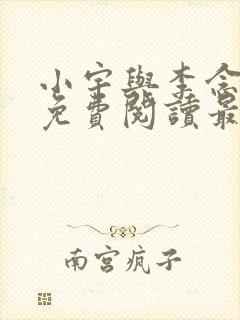 小宇與李念
免費閱讀最
南宮瘋子